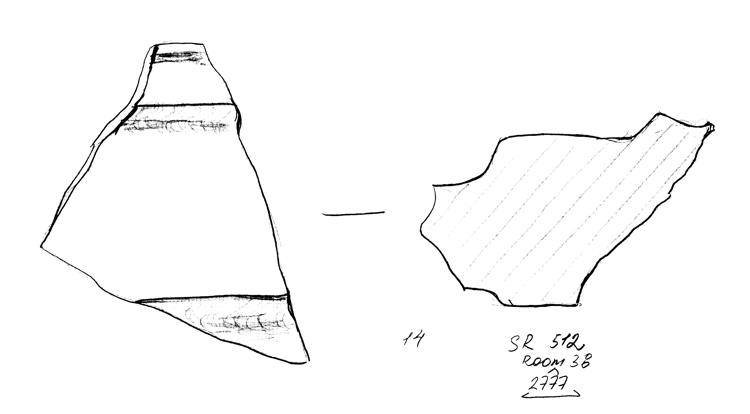 14
SR 512
ROOM 38
2777